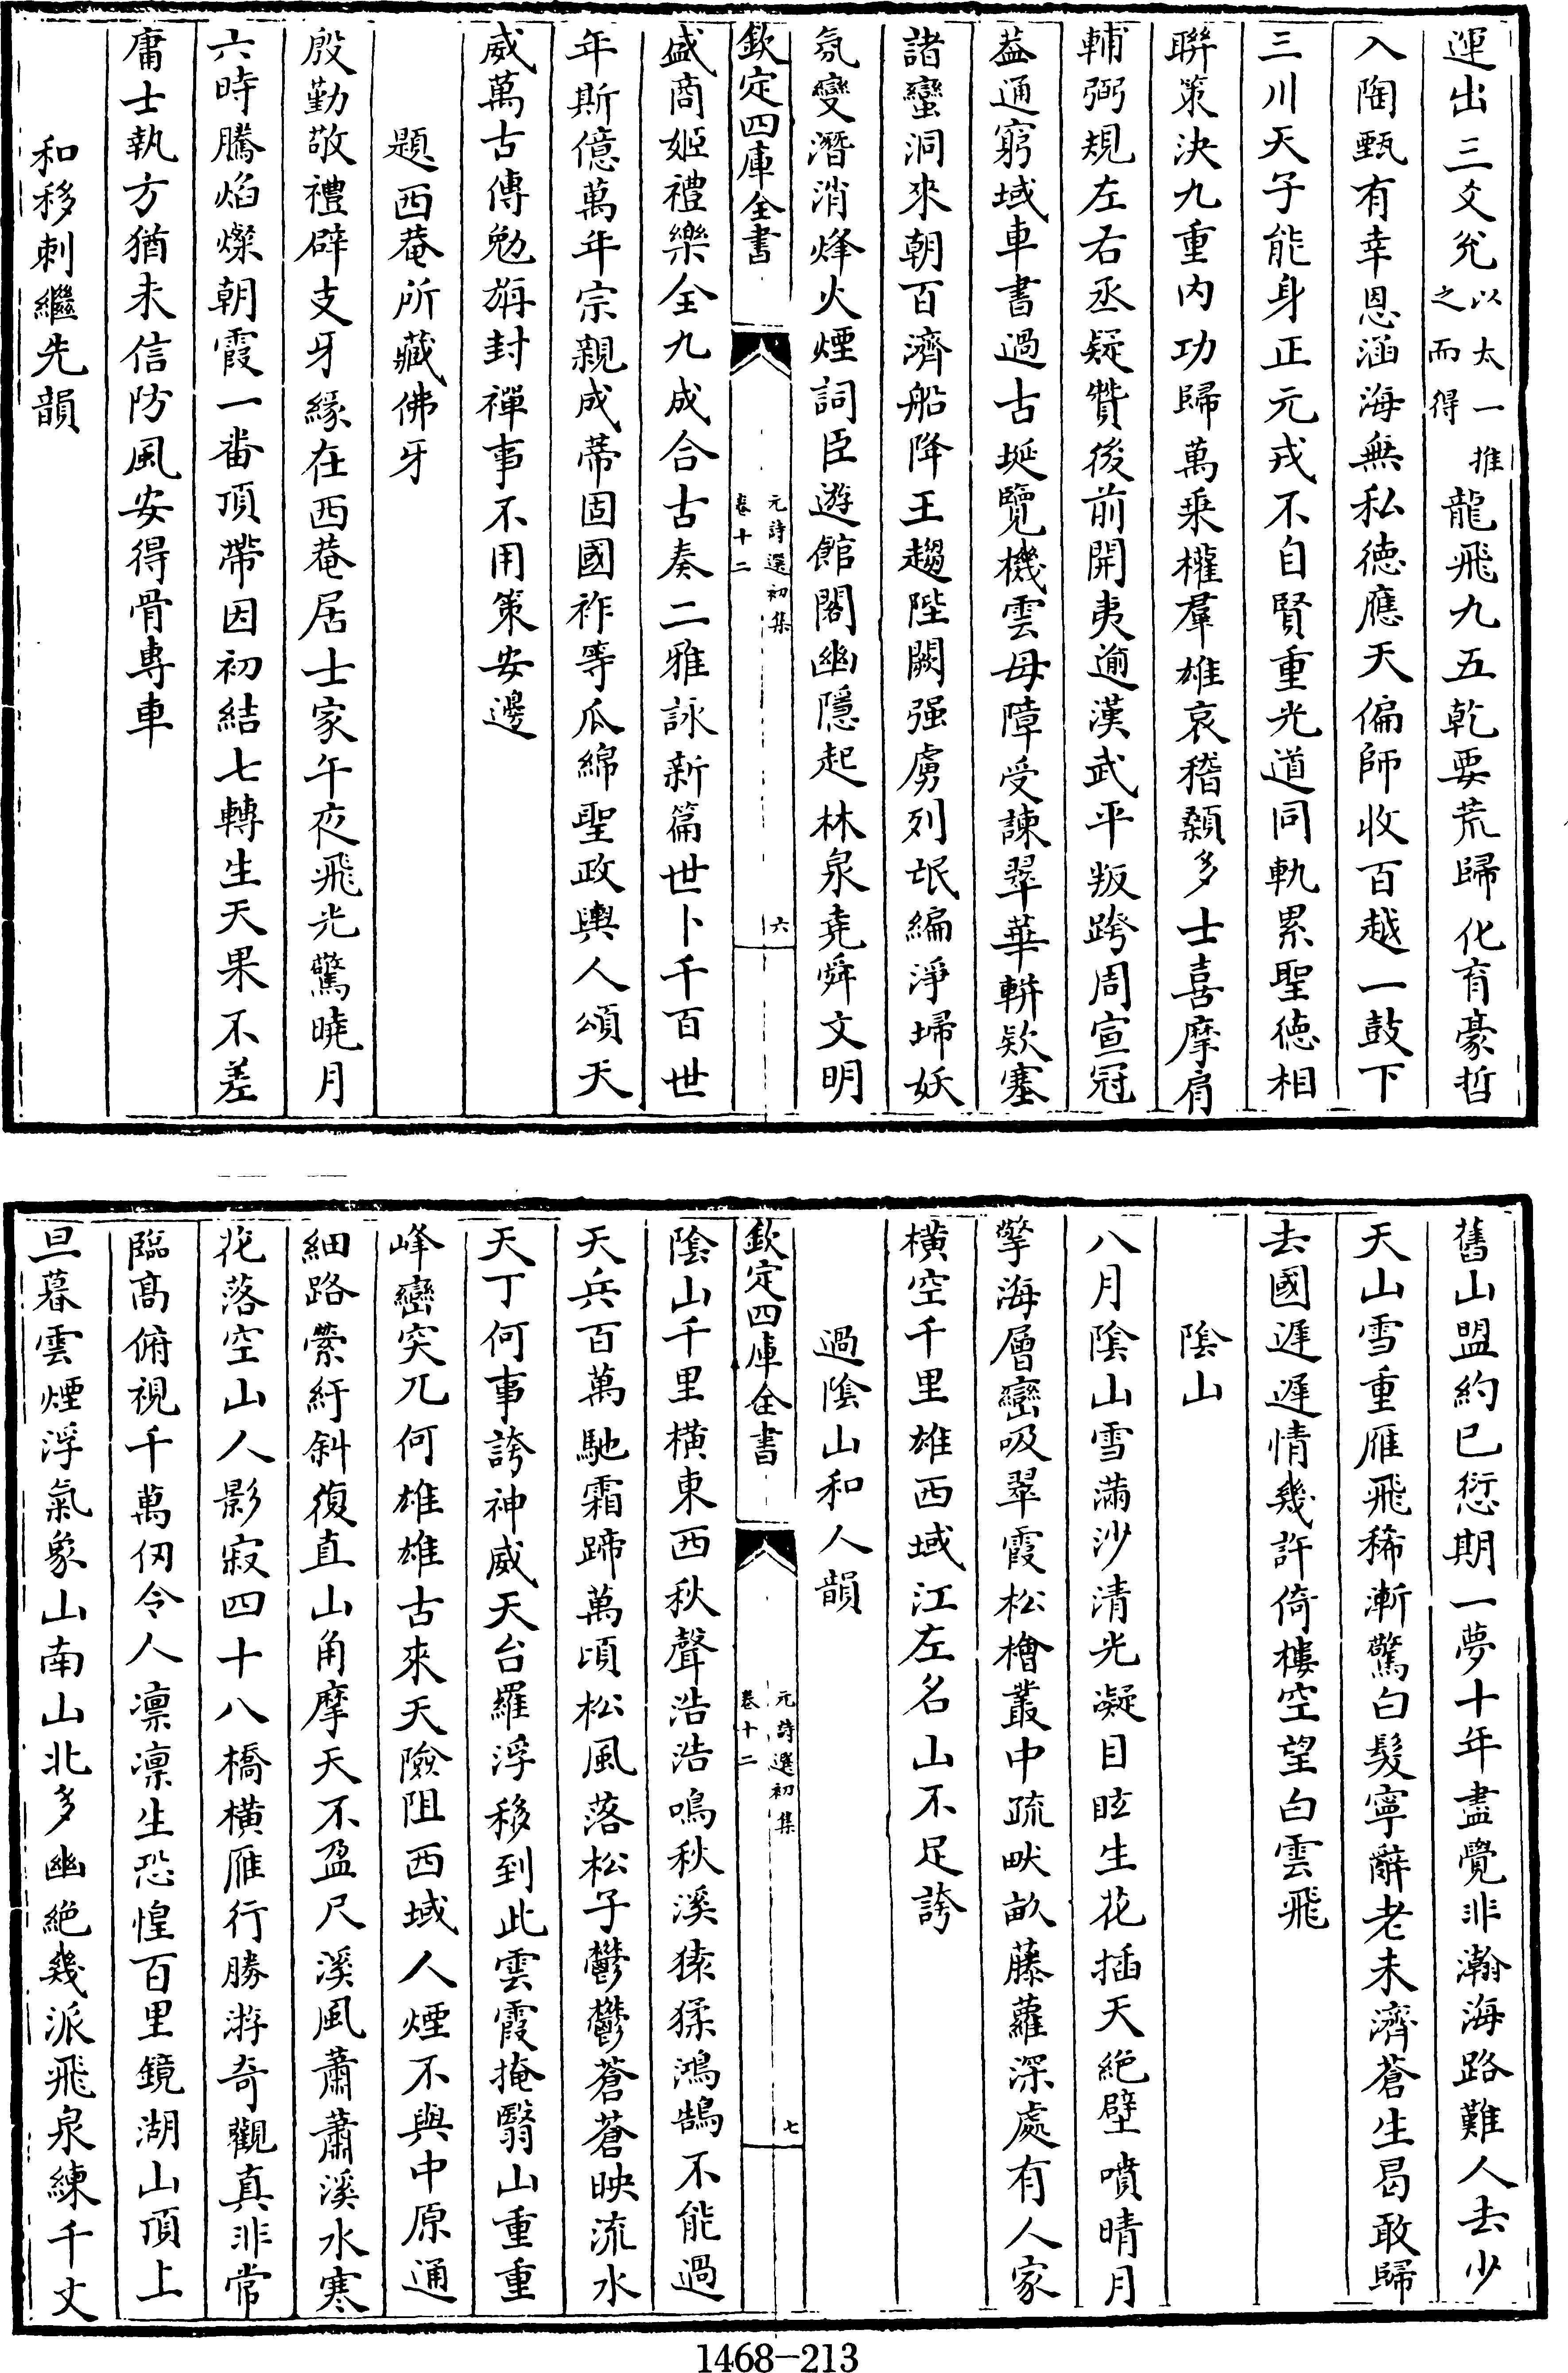 運出三爻兊以太一推之而得龍飛九五乾要荒歸化育豪哲
入陶甄有幸恩涵海無私德應天偏師收百越一鼓下
三川天子能身正元戎不自賢重光道同軌累聖德相
聯策決九重内功歸萬乘權羣雄哀稽顙多士喜摩肩
輔弼規左右丞疑贊後前開夷逾漢武平叛跨周宣冠
葢通窮域車書過古埏覽機雲母障受諫翠華軿欵塞
諸蠻洞來朝百濟船降王趨陛闕强虜列氓編淨埽妖
氛變潛消烽火煙詞臣遊館閣幽隱起林泉堯舜文明
欽定四庫全書
元詩選初集
卷十二
六
盛商姬禮樂全九成合古奏二雅詠新篇世卜千百世
年斯億萬年宗親成蒂固國祚等瓜綿聖政輿人頌天
威萬古傳勉旃封禪事不用策安邊
題西菴所藏佛牙
殷勤敬禮辟支牙緣在西菴居士家午夜飛光驚曉月
六時騰焰燦朝霞一畨頂帶因初結七轉生天果不差
庸士執方猶未信防風安得骨專車
和移剌繼先韻
舊山盟約已愆期一夢十年盡覺非瀚海路難人去少
天山雪重雁飛稀漸驚白髮寧辭老未濟蒼生曷敢歸
去國遲遲情幾許倚樓空望白雲飛
陰山
八月陰山雪滿沙清光凝目眩生花插天絶壁噴晴月
擎海層巒吸翠霞松檜叢中疏畎畝藤蘿深處有人家
橫空千里雄西域江左名山不足誇
過陰山和人韻
欽定四庫全書
元詩選初集
卷十二
七
陰山千里橫東西秋聲浩浩鳴秋溪猿猱鴻鵠不能過
天兵百萬馳霜蹄萬頃松風落松子鬱鬱蒼蒼映流水
天丁何事誇神威天台羅浮移到此雲霞掩翳山重重
峰巒突兀何雄雄古來天險阻西域人煙不與中原通
細路縈紆斜復直山角摩天不盈尺溪風蕭蕭溪水寒
花落空山人影寂四十八橋橫雁行勝游奇觀真非常
臨高俯視千萬仞令人凛凛生恐惶百里鏡湖山頂上
旦暮雲煙浮氣象山南山北多幽絶幾派飛泉練千丈
1468-213